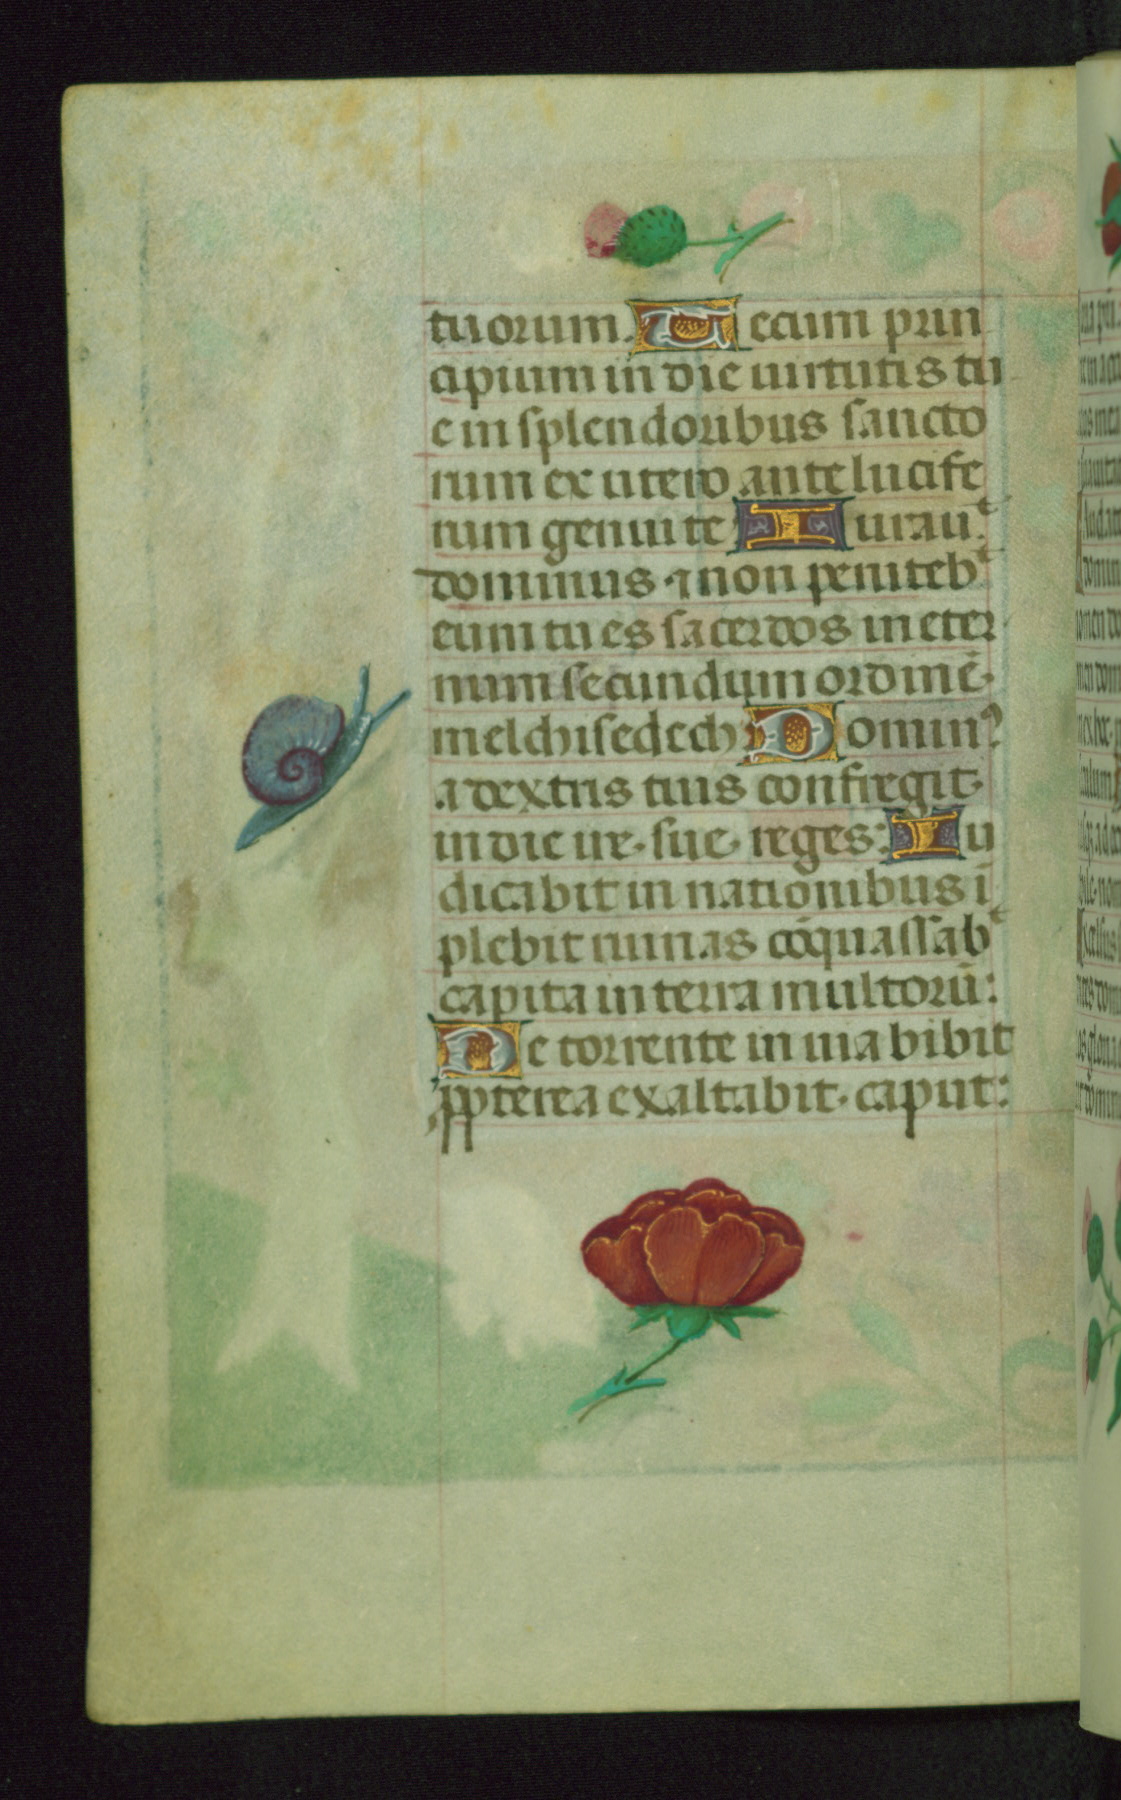 tuorum. Tecum prin
cipium in die uirtutis tu
e in splendoribus sancto
rum ex utero ante lucife
rum genui te Iurauᵗ.
dominus ⁊ non penitebᵗ
eum tu es sacerdos in eter
num secundum ordinē.
melchisedech: Dominꝰ
a dextris tuis confregit
in die ire. sue. reges: Iu
dicabit in nationibus ī
plebit ruinas cōquassabᵗ
capita in terra multorū:
De torrente in uia bibit
ꝓpterea exaltabit. caput: